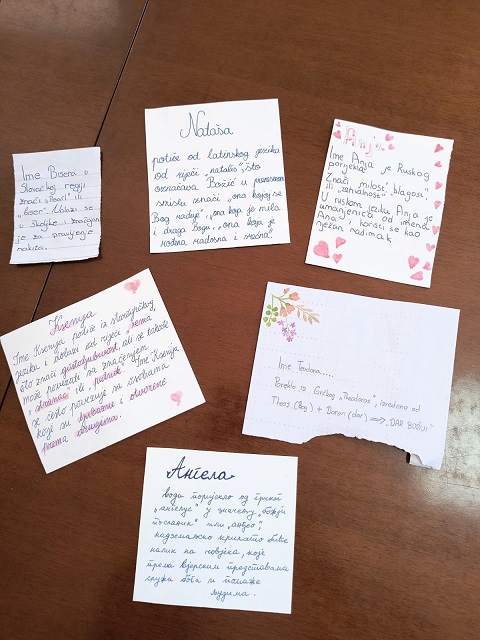 Nataša
potiče od latinskog jezika
od riječi „natalis", što
označava Božić u prenesenom
smislu označi „ona kojoj se
Bog raduje", „ona koja je mila
i draga Bogu", „ona koja je
rodna, radosna i srećna".
Ime Bisera u
Slovačkoj regiji
znači „Pearl" ili
"biser". Ulazi se
u školjke i
je za pravljenje
nakita.
Anja
Ime Anja je Ruskog
porijekla.
Znači „milost", „blagost"
ili „senzualnost".
U ruskom jeziku Anja je
umanjenica od imena
Ana i koristi se kao
nježan nadimak
Ksenija
Ime Ksenija potiče iz starogrčkog
jezika i dolazi od riječi „xenia",
što znači gostoljubivost, ali se takođe
može povezati sa značenjem
„stranac" ili „putnik". Ime Ksenija
se često povezuje sa osobama
koje su ljubazne i otvorene
prema drugima.
Ime Teodora....
Poreklo iz Grčkog „Theodoros", izvedeno od
Theos (Bog) + Doron (dar) => „DAR BOŽIJI"
Ангела
води поријекло од грчког
„ангелус" у значењу „божји
посланик" или „анђео",
надземаљско крилато биће
налик на човјека, које
према вјерским представама
служи Богу и помаже
људима.